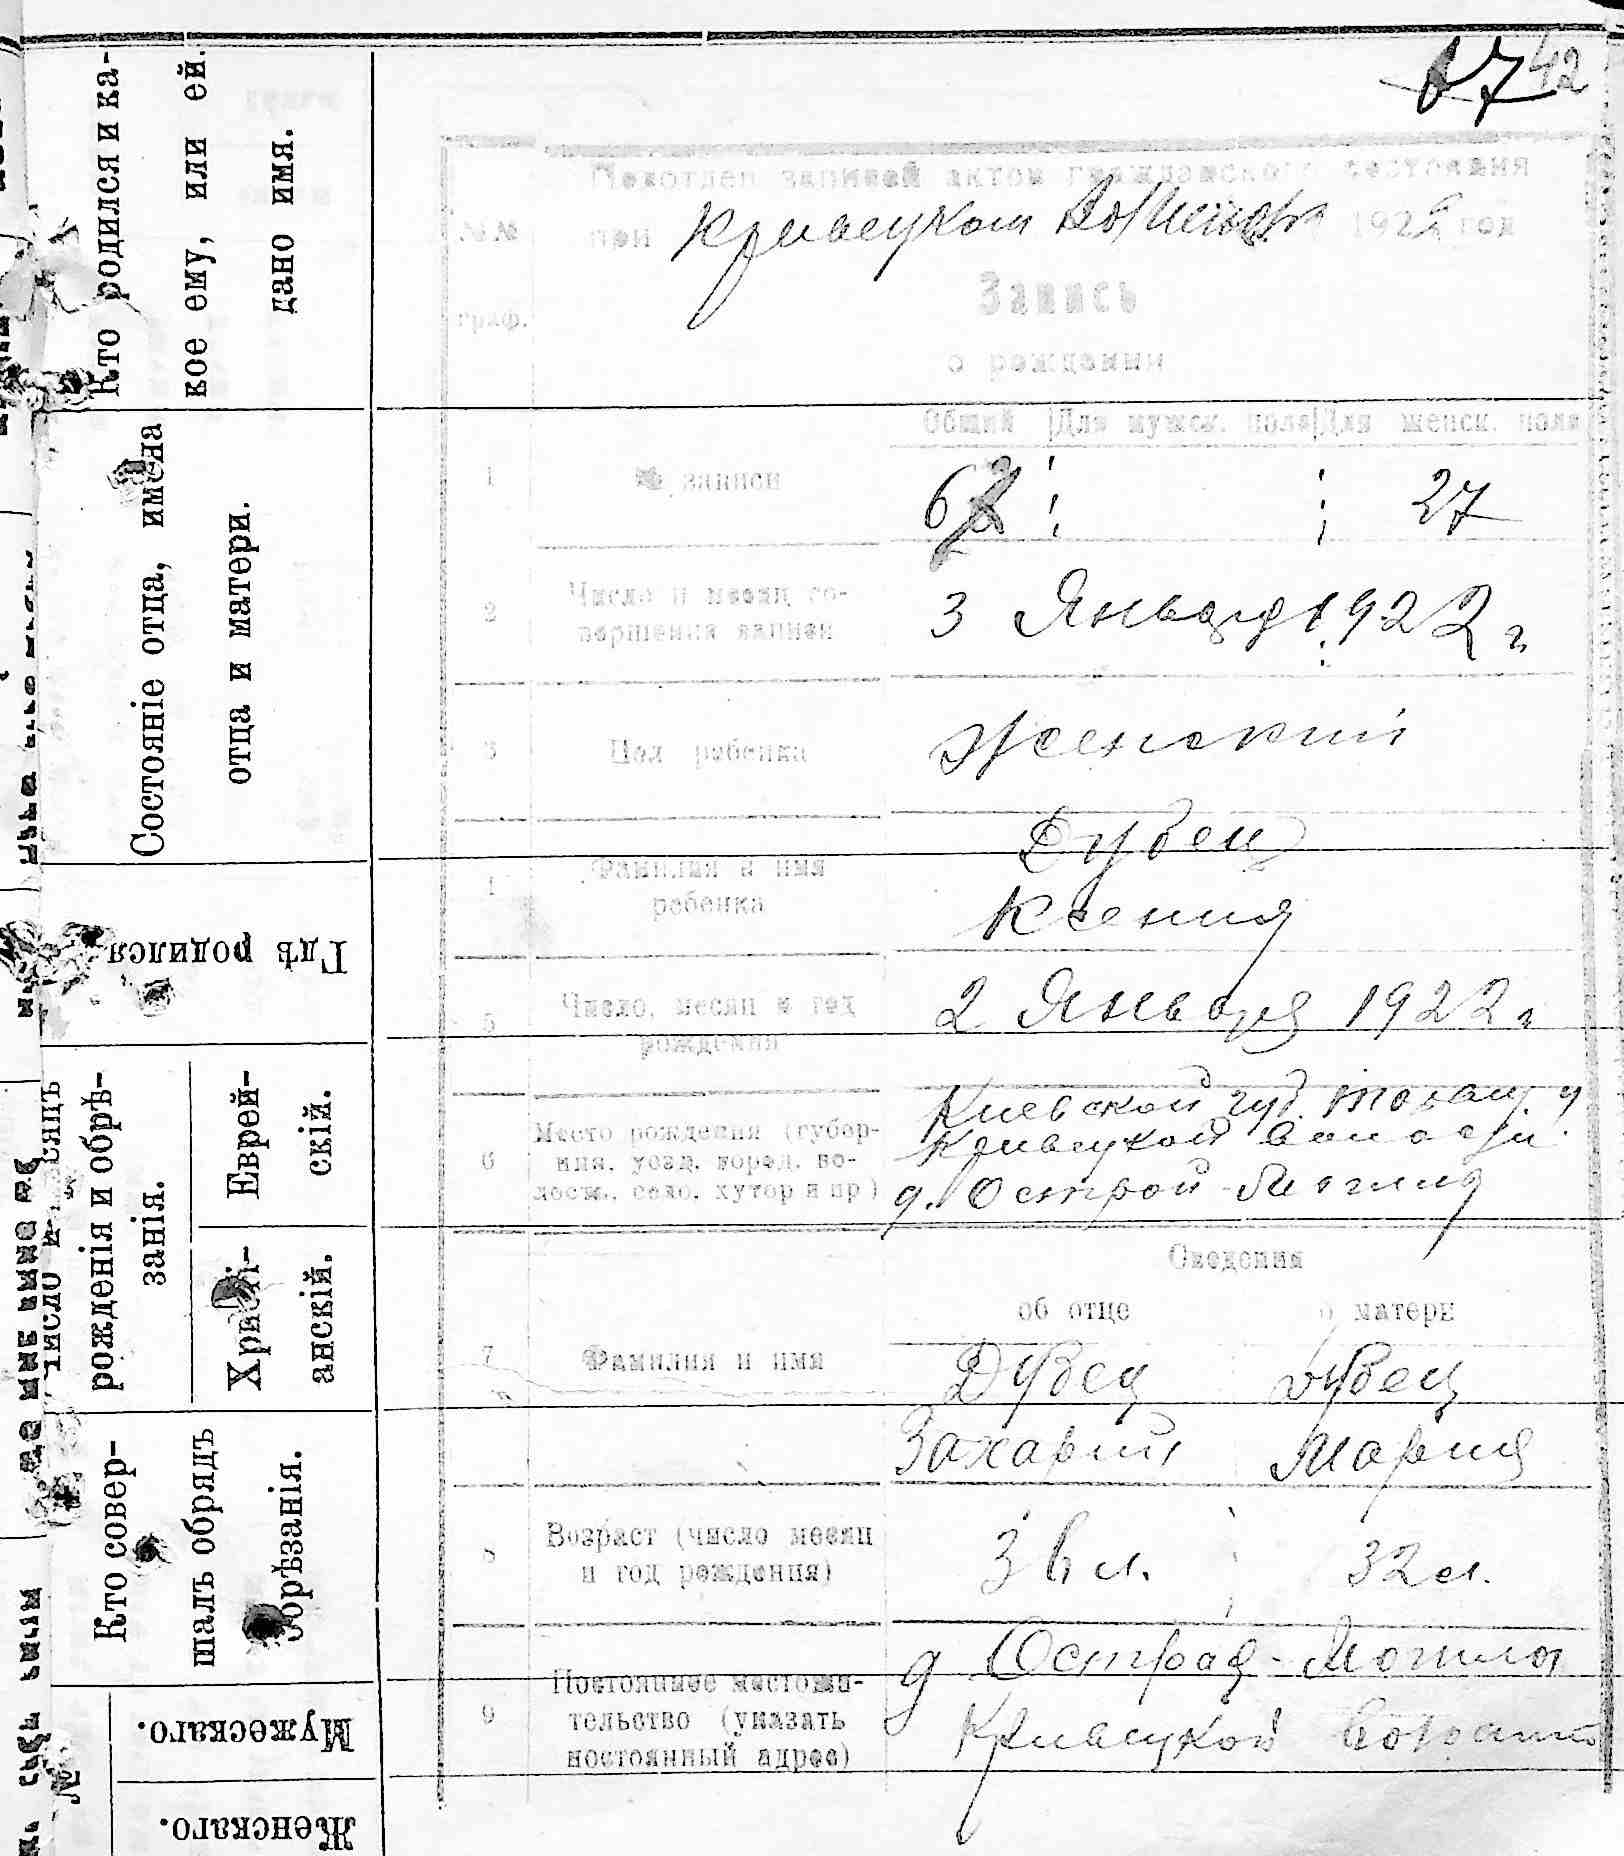 42
Подотдел записей актов гражданского состояния
№№ при Кривецком 1922 год
граф. Запись
о рождении
Общий Для мужск. пола Для женск. пола
1 № записи 6 27
2 Число и месяц со-
вершения записи
3 Января 1922 г.
3 Пол ребенка Женский
4 Фамилия и имя
ребенка
Дубец
Ксения
5 Число, месяц и год
рождения
2 Января 1922 г.
6 Место рождения (губер-
ния, уезд, город, во-
лость, село, хутор и пр)
Киевской губ. Таращ. у
Кривецкой волости
д. Острой-Могила
Сведения
об отце о матери
7 Фамилия и имя Дубец Дубец
Захарий Мария
8 Возраст (число месяц
и год рождения)
36 л. 32 л.
9 Постоянное местожи-
тельство (указать
постоянный адрес)
д Острая-Могила
Кривецкой Волости
Кто родился и ка-
кое ему, или ей.
дано имя.
Состояніе отца, имена
отца и матери.
Гдѣ родился
Число и мѣсяцъ
рожденія и обрѣ-
занія.
Еврей-
скій.
Христі-
анскій.
Кто совер-
шалъ обрядъ
обрѣзанія.
№
Мужескаго.
Женскаго.